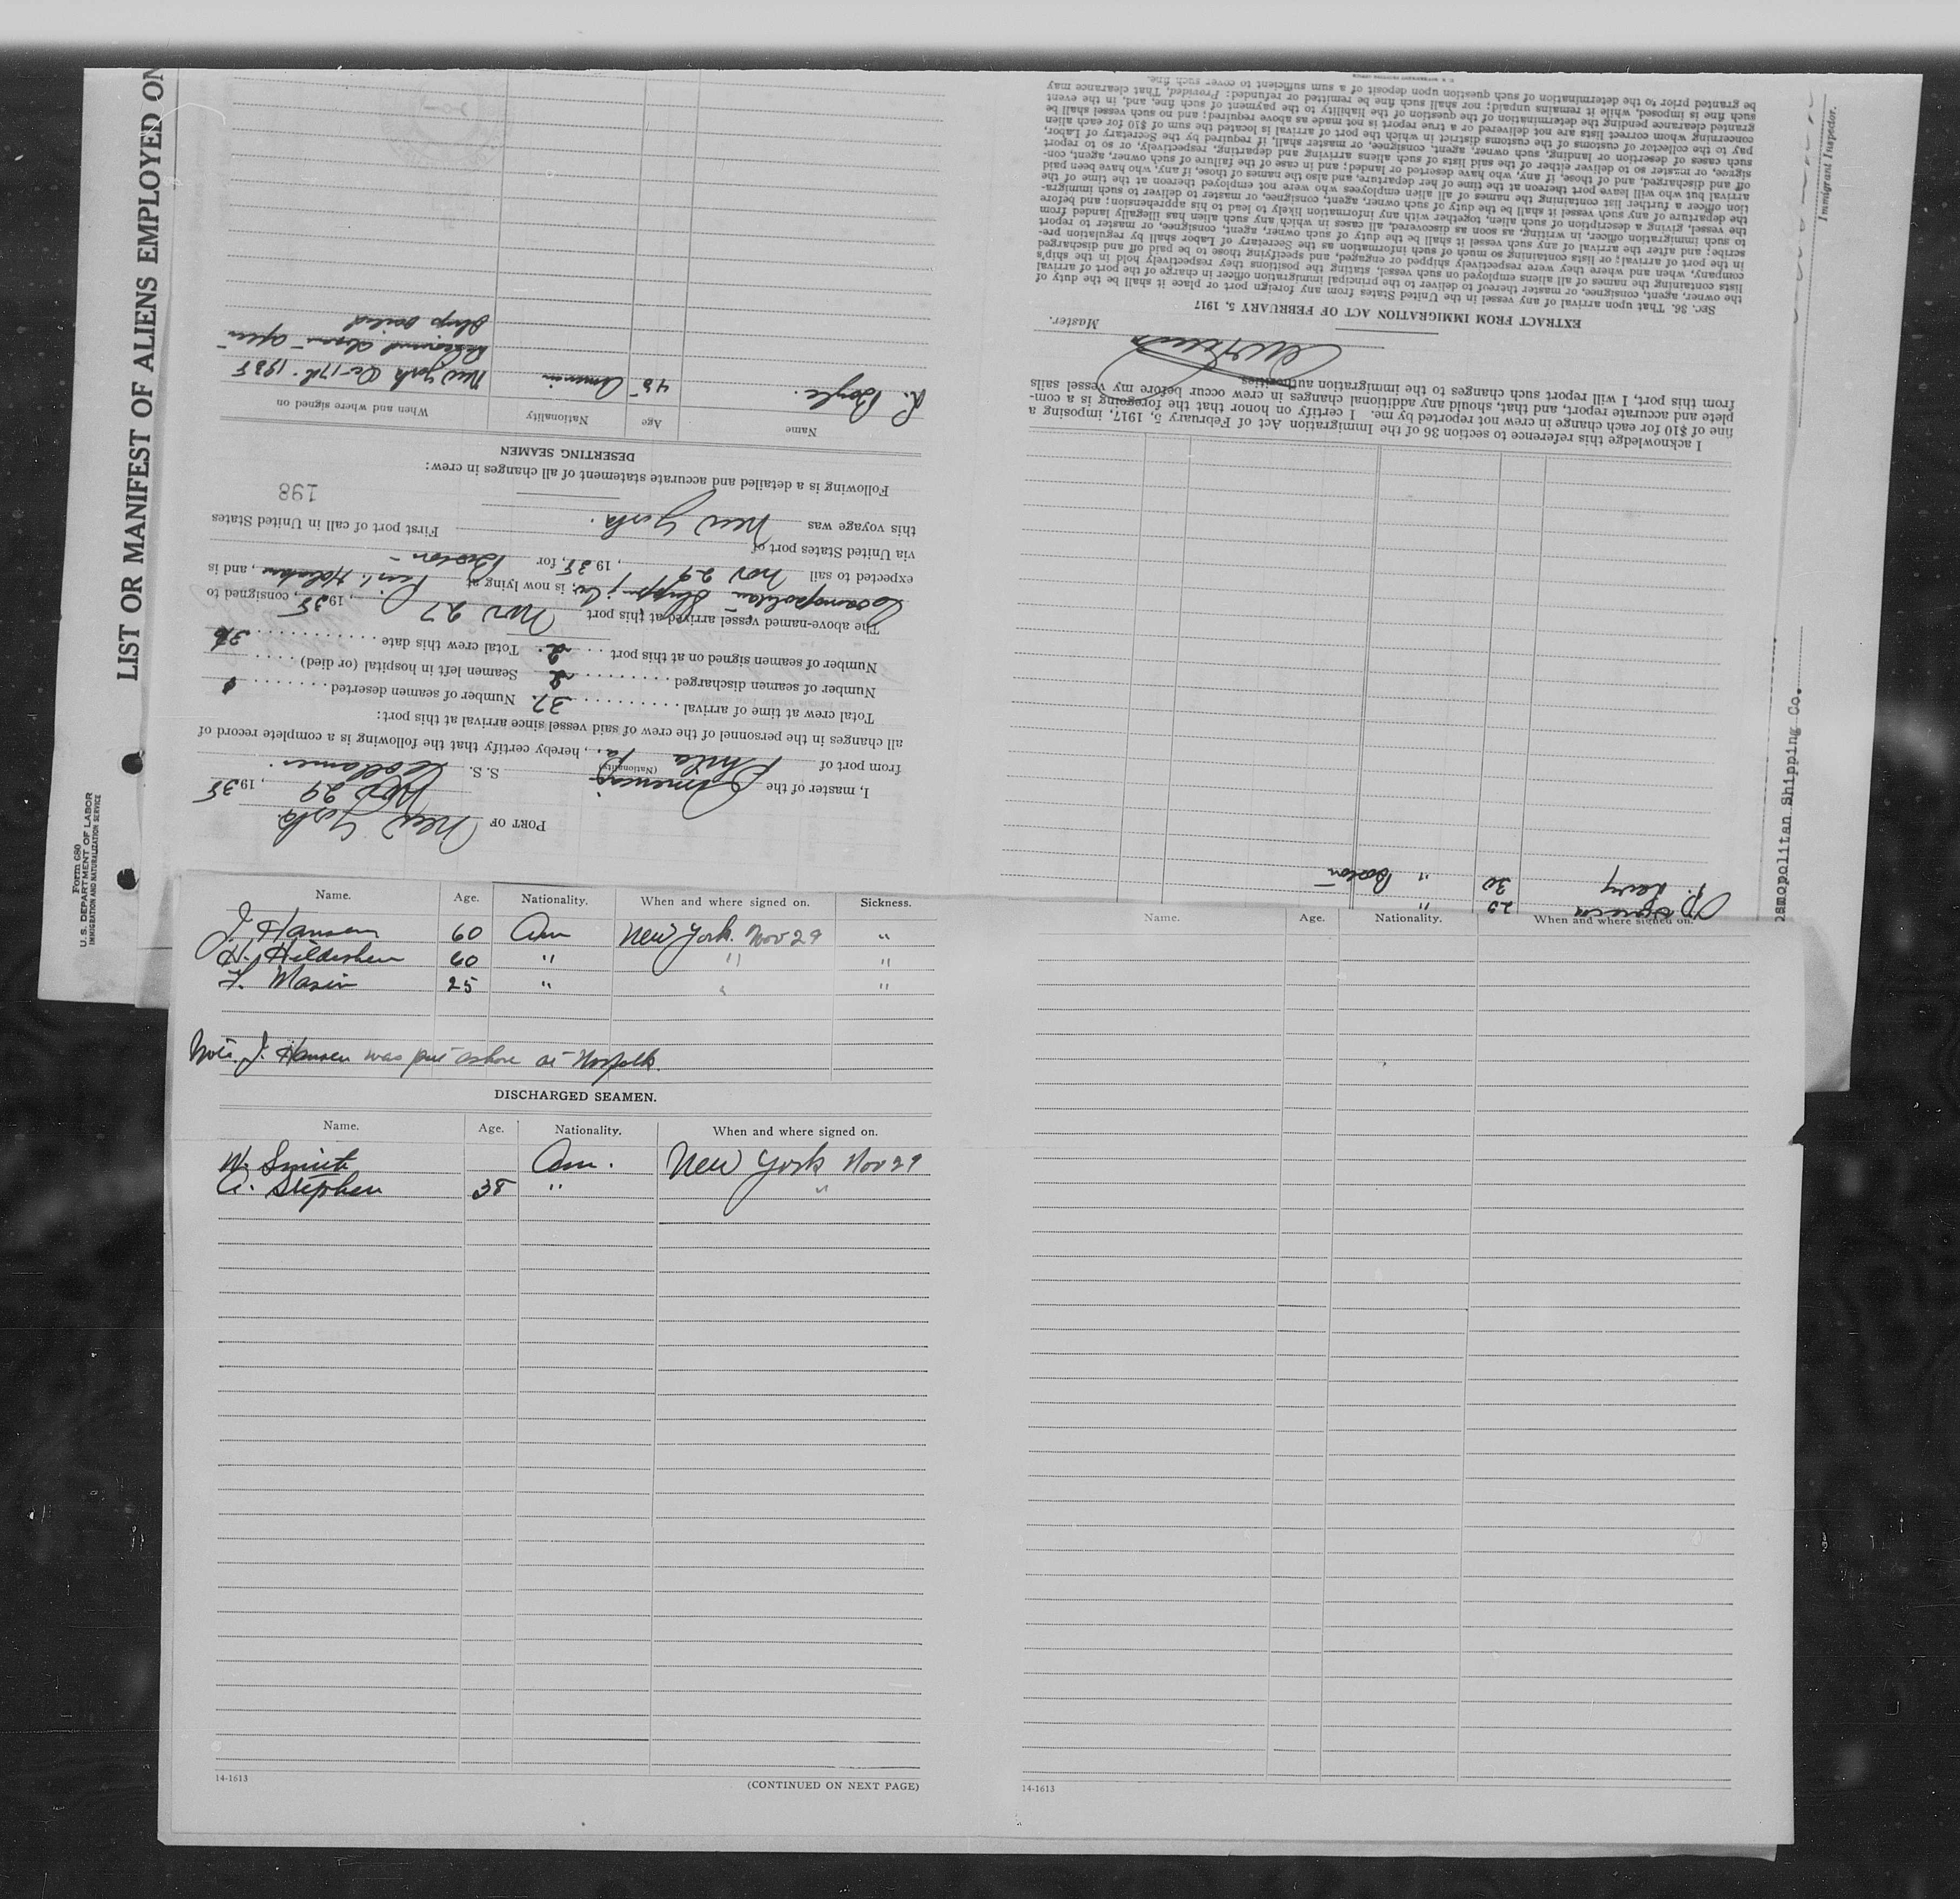 LIST OR MANIFEST OF ALIENS EMPLOYED ON
Form 680
U.S. DEPARTMENT OF LABOR
IMMIGRATION AND NATURALIZATION SERVICE
PORT OF New York
Nov 29, 1935
I, master of the American S. S.
(Nationality)
from port of Phila Pa., hereby certify that the following is a complete record of
all changes in the personnel of the crew of said vessel since arrival at this port:
Total crew at time of arrival 37. Number of seamen deserted
Number of seamen discharged 2 Seamen left in hospital (or died)
Number of seamen signed on at this port 2. Total crew this date 36
The above-named vessel arrived at this port Nov 27, 1935, consigned to
Cosmopolitan Shipping Co., is now lying at, and is
expected to sail Nov 29, 1935, for Boston
via United States port of
this voyage was New York. First port of call in United States
198
Following is a detailed and accurate statement of all changes in crew:
DESERTING SEAMEN
Name Age Nationality When and where signed on
R. Boyle. 45 American New York 1935
Ship sailed
I acknowledge this reference to section 36 of the Immigration Act of February 5, 1917, imposing a
fine of $10 for each change in crew not reported by me. I certify on honor that the foregoing is a com-
plete and accurate report, and that, should any additional changes in crew occur before my vessel sails
from this port, I will report such changes to the immigration authorities
Master.
EXTRACT FROM IMMIGRATION ACT OF FEBRUARY 5, 1917
Sec. 36. That upon arrival of any vessel in the United States from any foreign port or place it shall be the duty of
the owner, agent, consignee, or master thereof to deliver to the principal immigration officer in charge of the port of arrival
lists containing the names of all aliens employed on such vessel, stating the positions they respectively hold in the ship's
company, when and where they were respectively shipped or engaged, and specifying those to be paid off and discharged
in the port of arrival; or lists containing so much of such information as the Secretary of Labor shall by regulation pre-
scribe; and after the arrival of any such vessel it shall be the duty of such owner, agent, consignee, or master to report
to such immigration officer, in writing, as soon as discovered, all cases in which any such alien has illegally landed from
the vessel, giving a description of such alien, together with any information likely to lead to his apprehension; and before
the departure of any such vessel it shall be the duty of such owner, agent, consignee, or master to deliver to such immigra-
tion officer a further list containing the names of all alien employees who were not employed thereon at the time of the
arrival but who will leave port thereon at the time of her departure, and also the names of those, if any, who have been paid
off and discharged, and of those, if any, who have deserted or landed; and in case of the failure of such owner, agent, con-
signee, or master so to deliver either of the said lists of such aliens arriving and departing, respectively, or so to report
such cases of desertion or landing, such owner, agent, consignee, or master shall, if required by the Secretary of Labor,
pay to the collector of customs of the customs district in which the port of arrival is located the sum of $10 for each alien
concerning whom correct lists are not delivered or a true report is not made as above required; and no such vessel shall be
granted clearance pending the determination of the question of the liability to the payment of such fine, and, in the event
such fine is imposed, while it remains unpaid; nor shall such fine be remitted or refunded: Provided, That clearance may
be granted prior to the determination of such question upon deposit of a sum sufficient to cover such fine.
Immigrant Inspector.
smopolitan Shipping Co.
25 "
P. Levy 30 " Boston
Name. Age. Nationality. When and where signed on. Sickness.
J Hansen 60 Am New York. Nov 29 "
H. 60 " " "
F. Masin 25 " " "
Note. J. Hansen was put ashore at Norfolk.
DISCHARGED SEAMEN.
Name. Age. Nationality. When and where signed on.
W. Smith Am. New York Nov 29
A. Stephen 38 " "
14-1613
(CONTINUED ON NEXT PAGE)
Name. Age. Nationality. When and where signed on.
14-1613